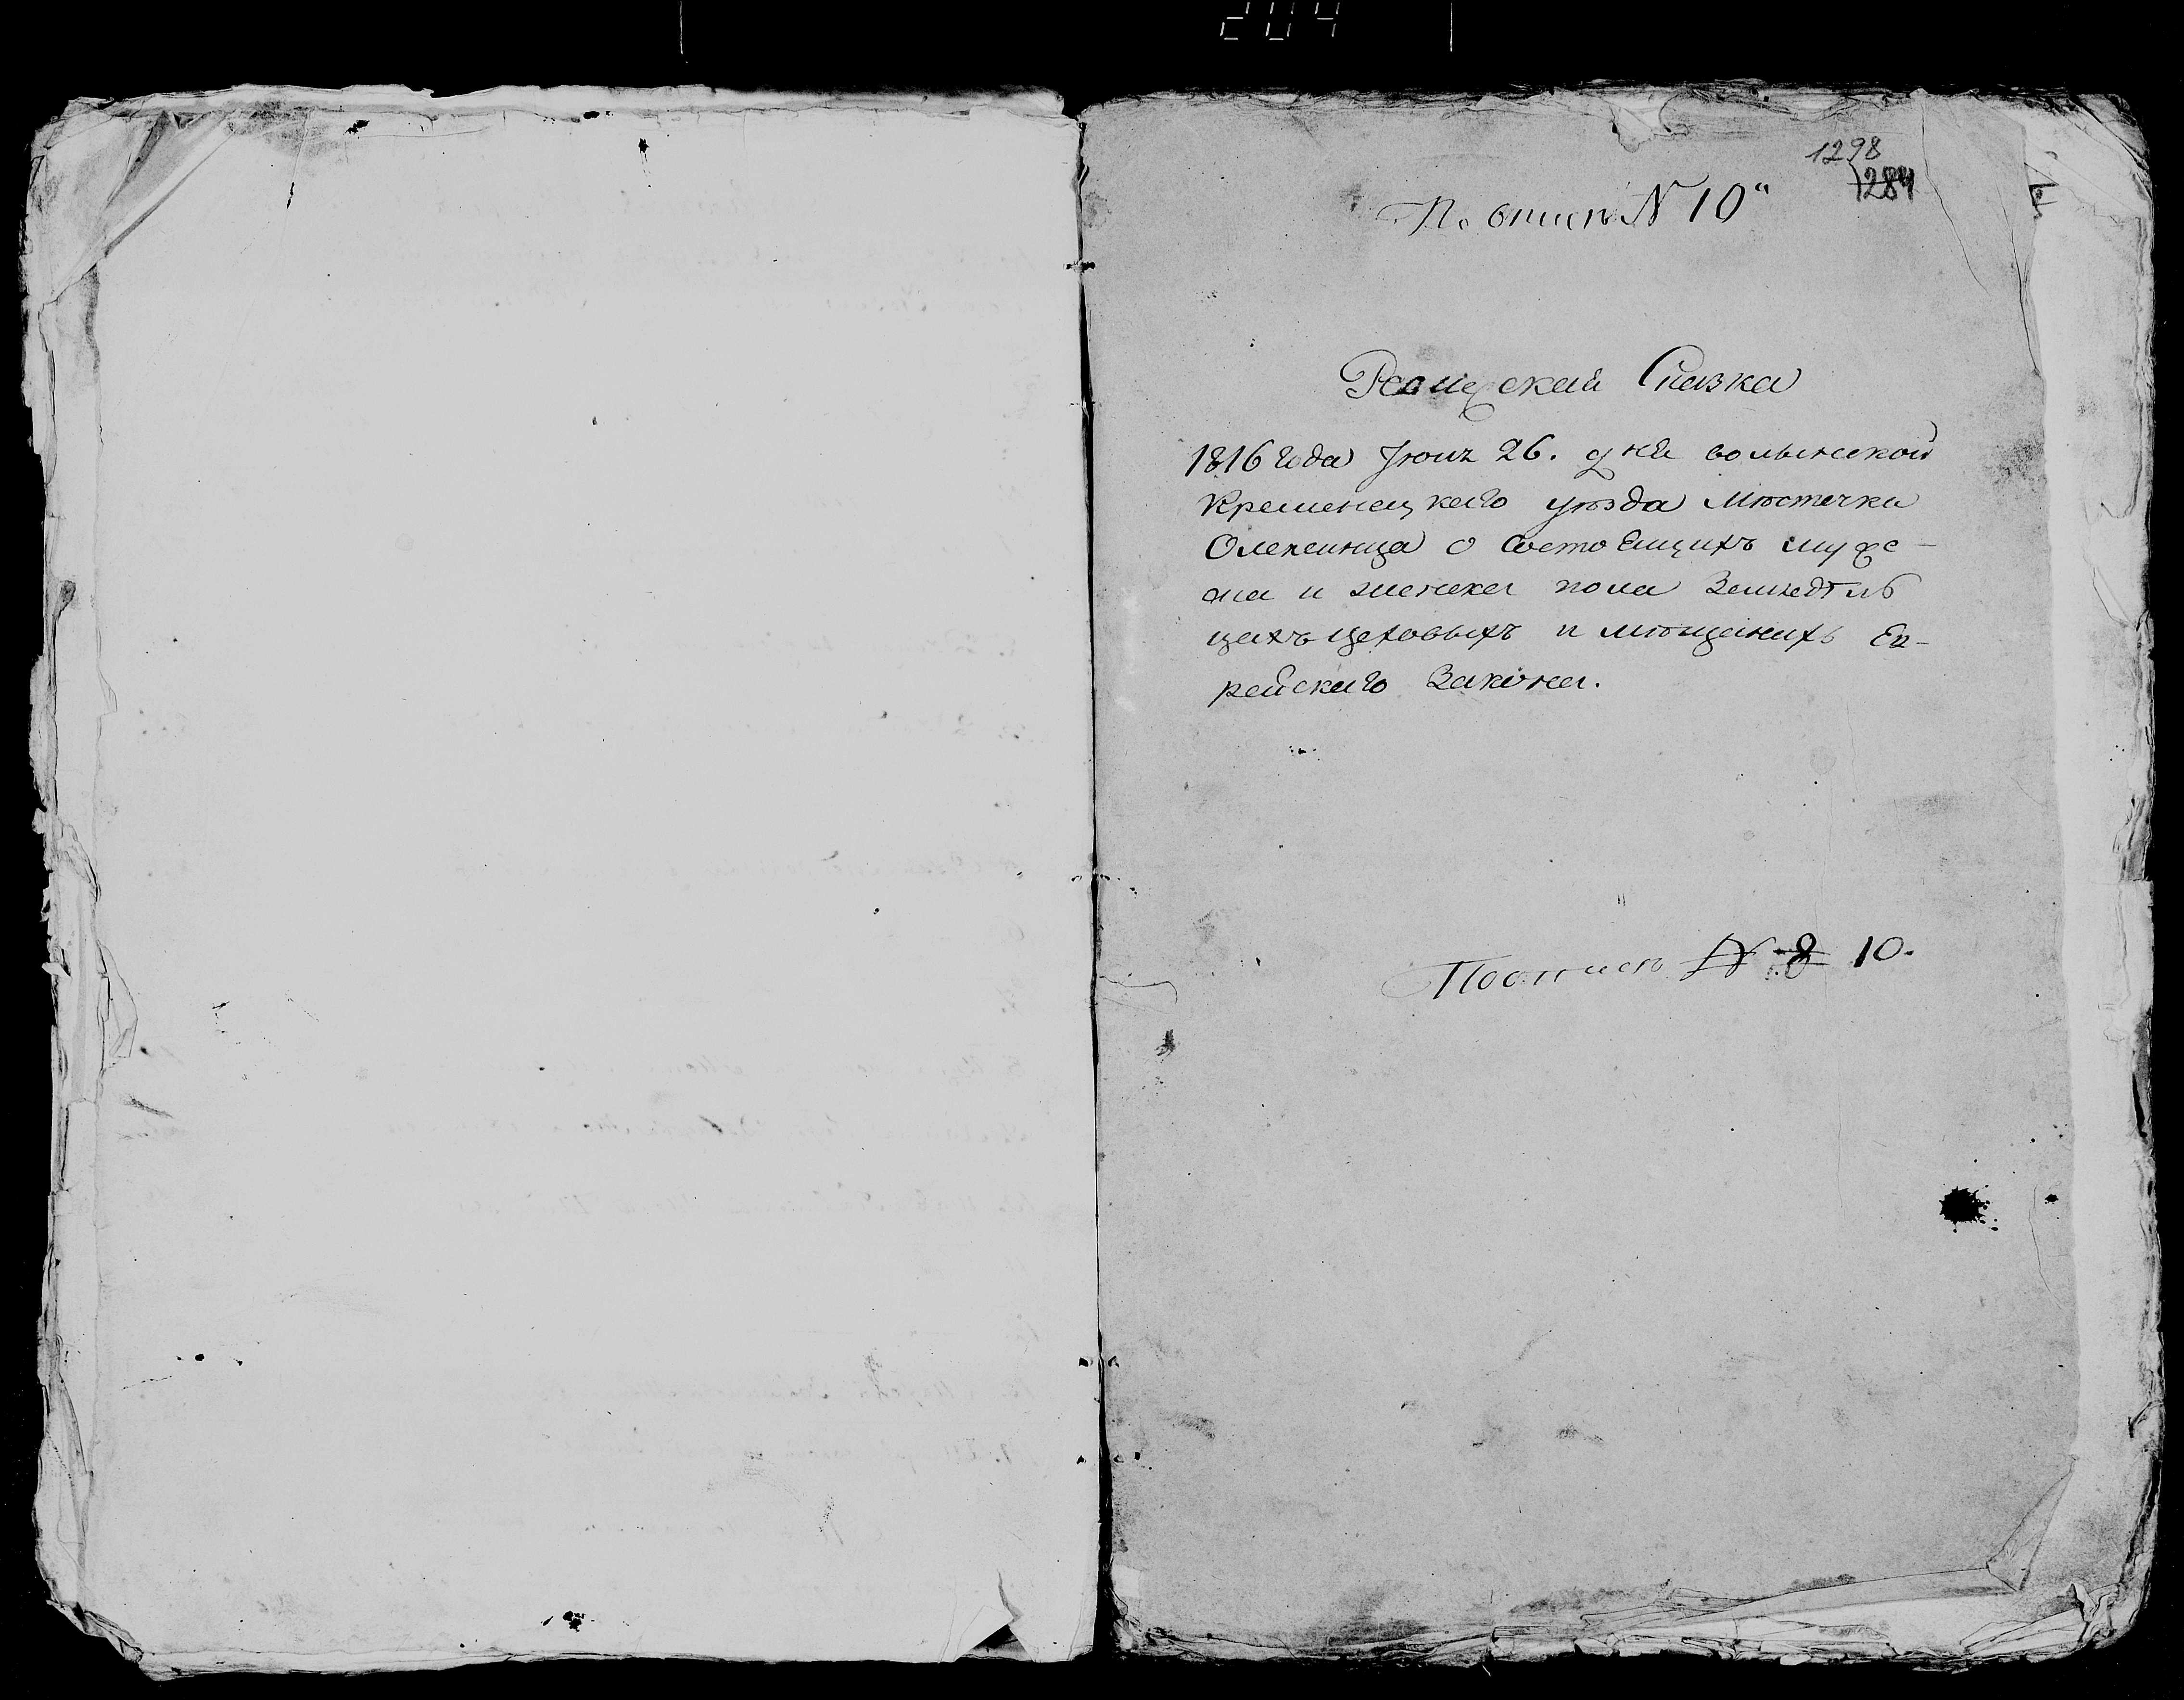 204
1298
284
По описи N 10"
Ревижская Сказка
1816 года Июня 26. дня волынской
Кременецкаго уѣзда Мѣстечка
Олексинца о Состоящихъ муже-
ска и женска пола Земледѣль
цахъ цеховыхъ и мѣщанахъ Ев-
рейскаго Закона.
По описи N 8 10.